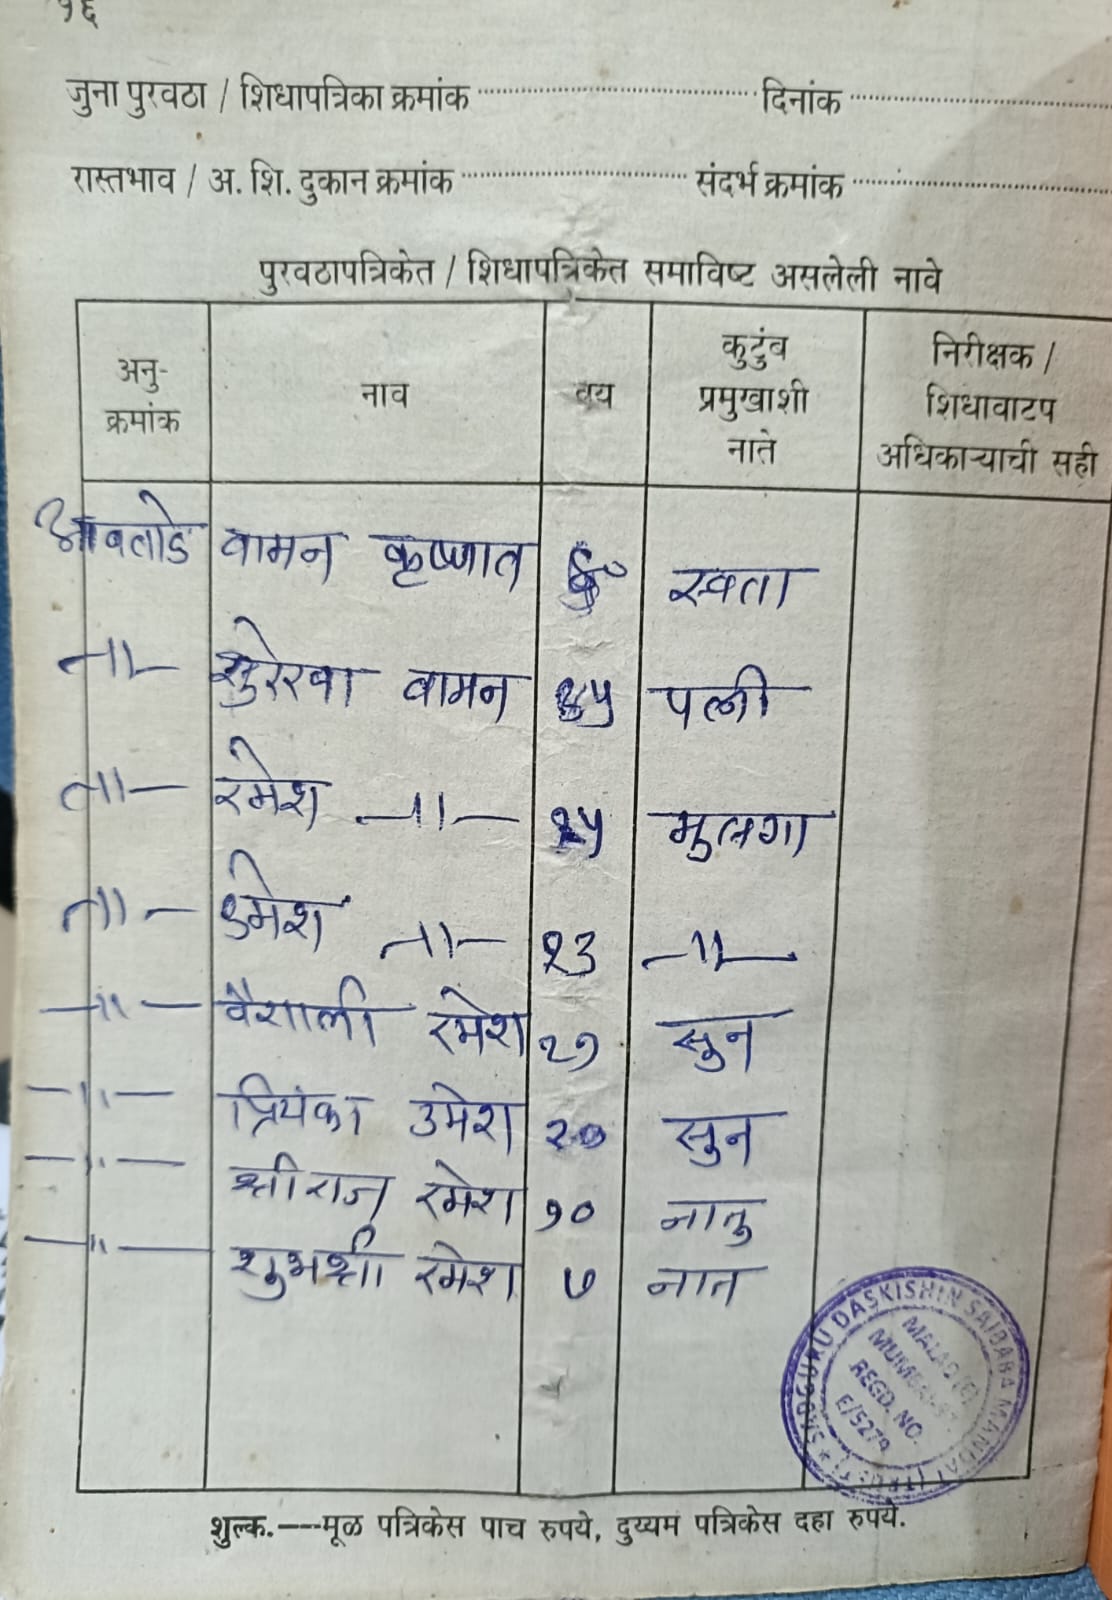 १६
जुना पुरवठा / शिधापत्रिका क्रमांक .............................. दिनांक ..............................
रास्तभाव / अ. शि. दुकान क्रमांक .............................. संदर्भ क्रमांक ..............................
पुरवठापत्रिकेत / शिधापत्रिकेत समाविष्ट असलेली नावे
अनु-क्रमांक नाव वय कुटुंब प्रमुखाशी नाते निरीक्षक / शिधावाटप अधिकाऱ्याची सही
वामन कृष्णात स्वता
-॥- सुरेखा वामन ४५ पत्नी
-॥- रमेश -॥- २५ मुलगा
-॥- उमेश -॥- २३ -॥-
-॥- वैशाली रमेश २१ सुन
-॥- प्रियंका उमेश २० सुन
-॥- श्रीराज रमेश १० नातु
-॥- शुभश्री रमेश ७ नात
SADGURU DASKISHIN SAIBABA MANDAL (TRUST)
MALAD (E)
MUMBAI-97
REGD. NO.
E/5279
शुल्क.----मूळ पत्रिकेस पाच रुपये, दुय्यम पत्रिकेस दहा रुपये.